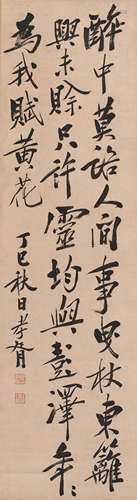 醉中莫話人間事曳杖東籬
興未賖只許靈均與彭澤年〻
為我賦黃花
丁巳秋日孝胥